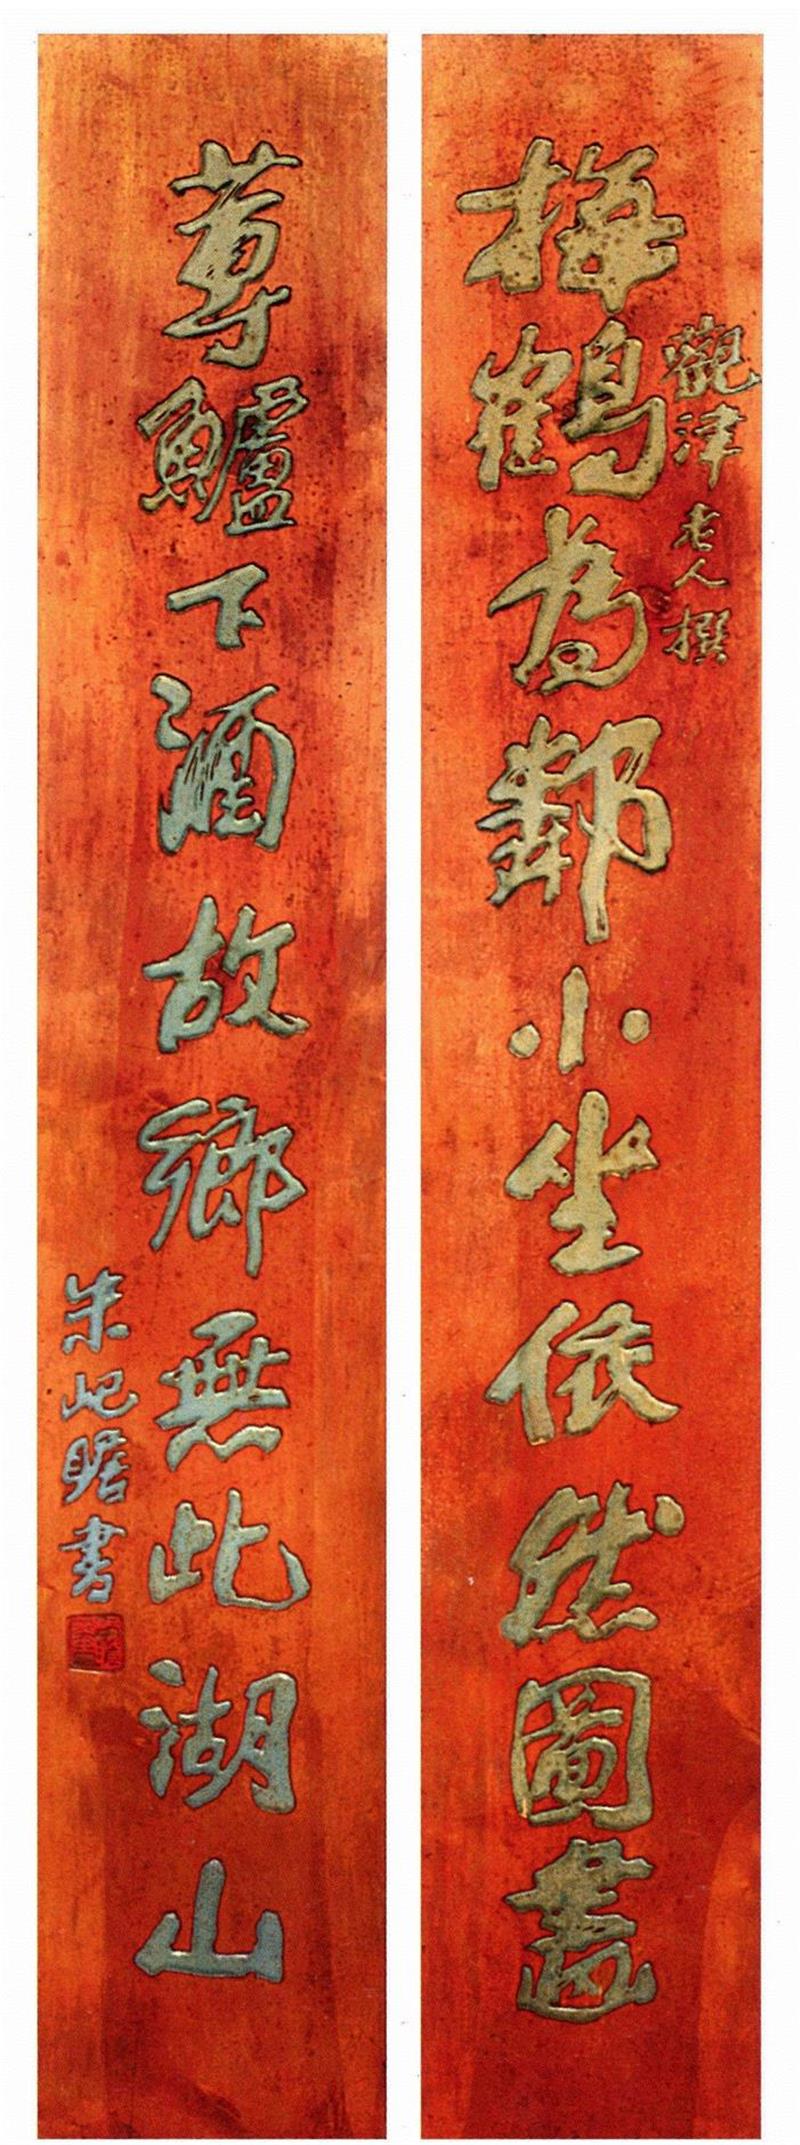 梅鶴為鄰小坐依然圖畫
觀津老人撰
蓴鱸下酒故鄉無此湖山
朱屺瞻書